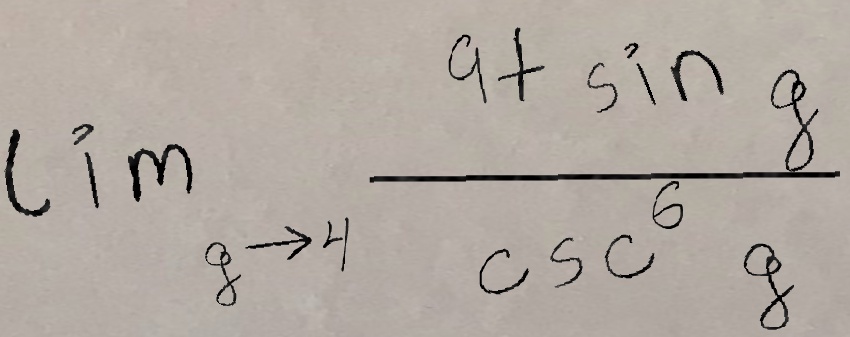 lim g→4 (9+ sin g) / (csc^6 g)